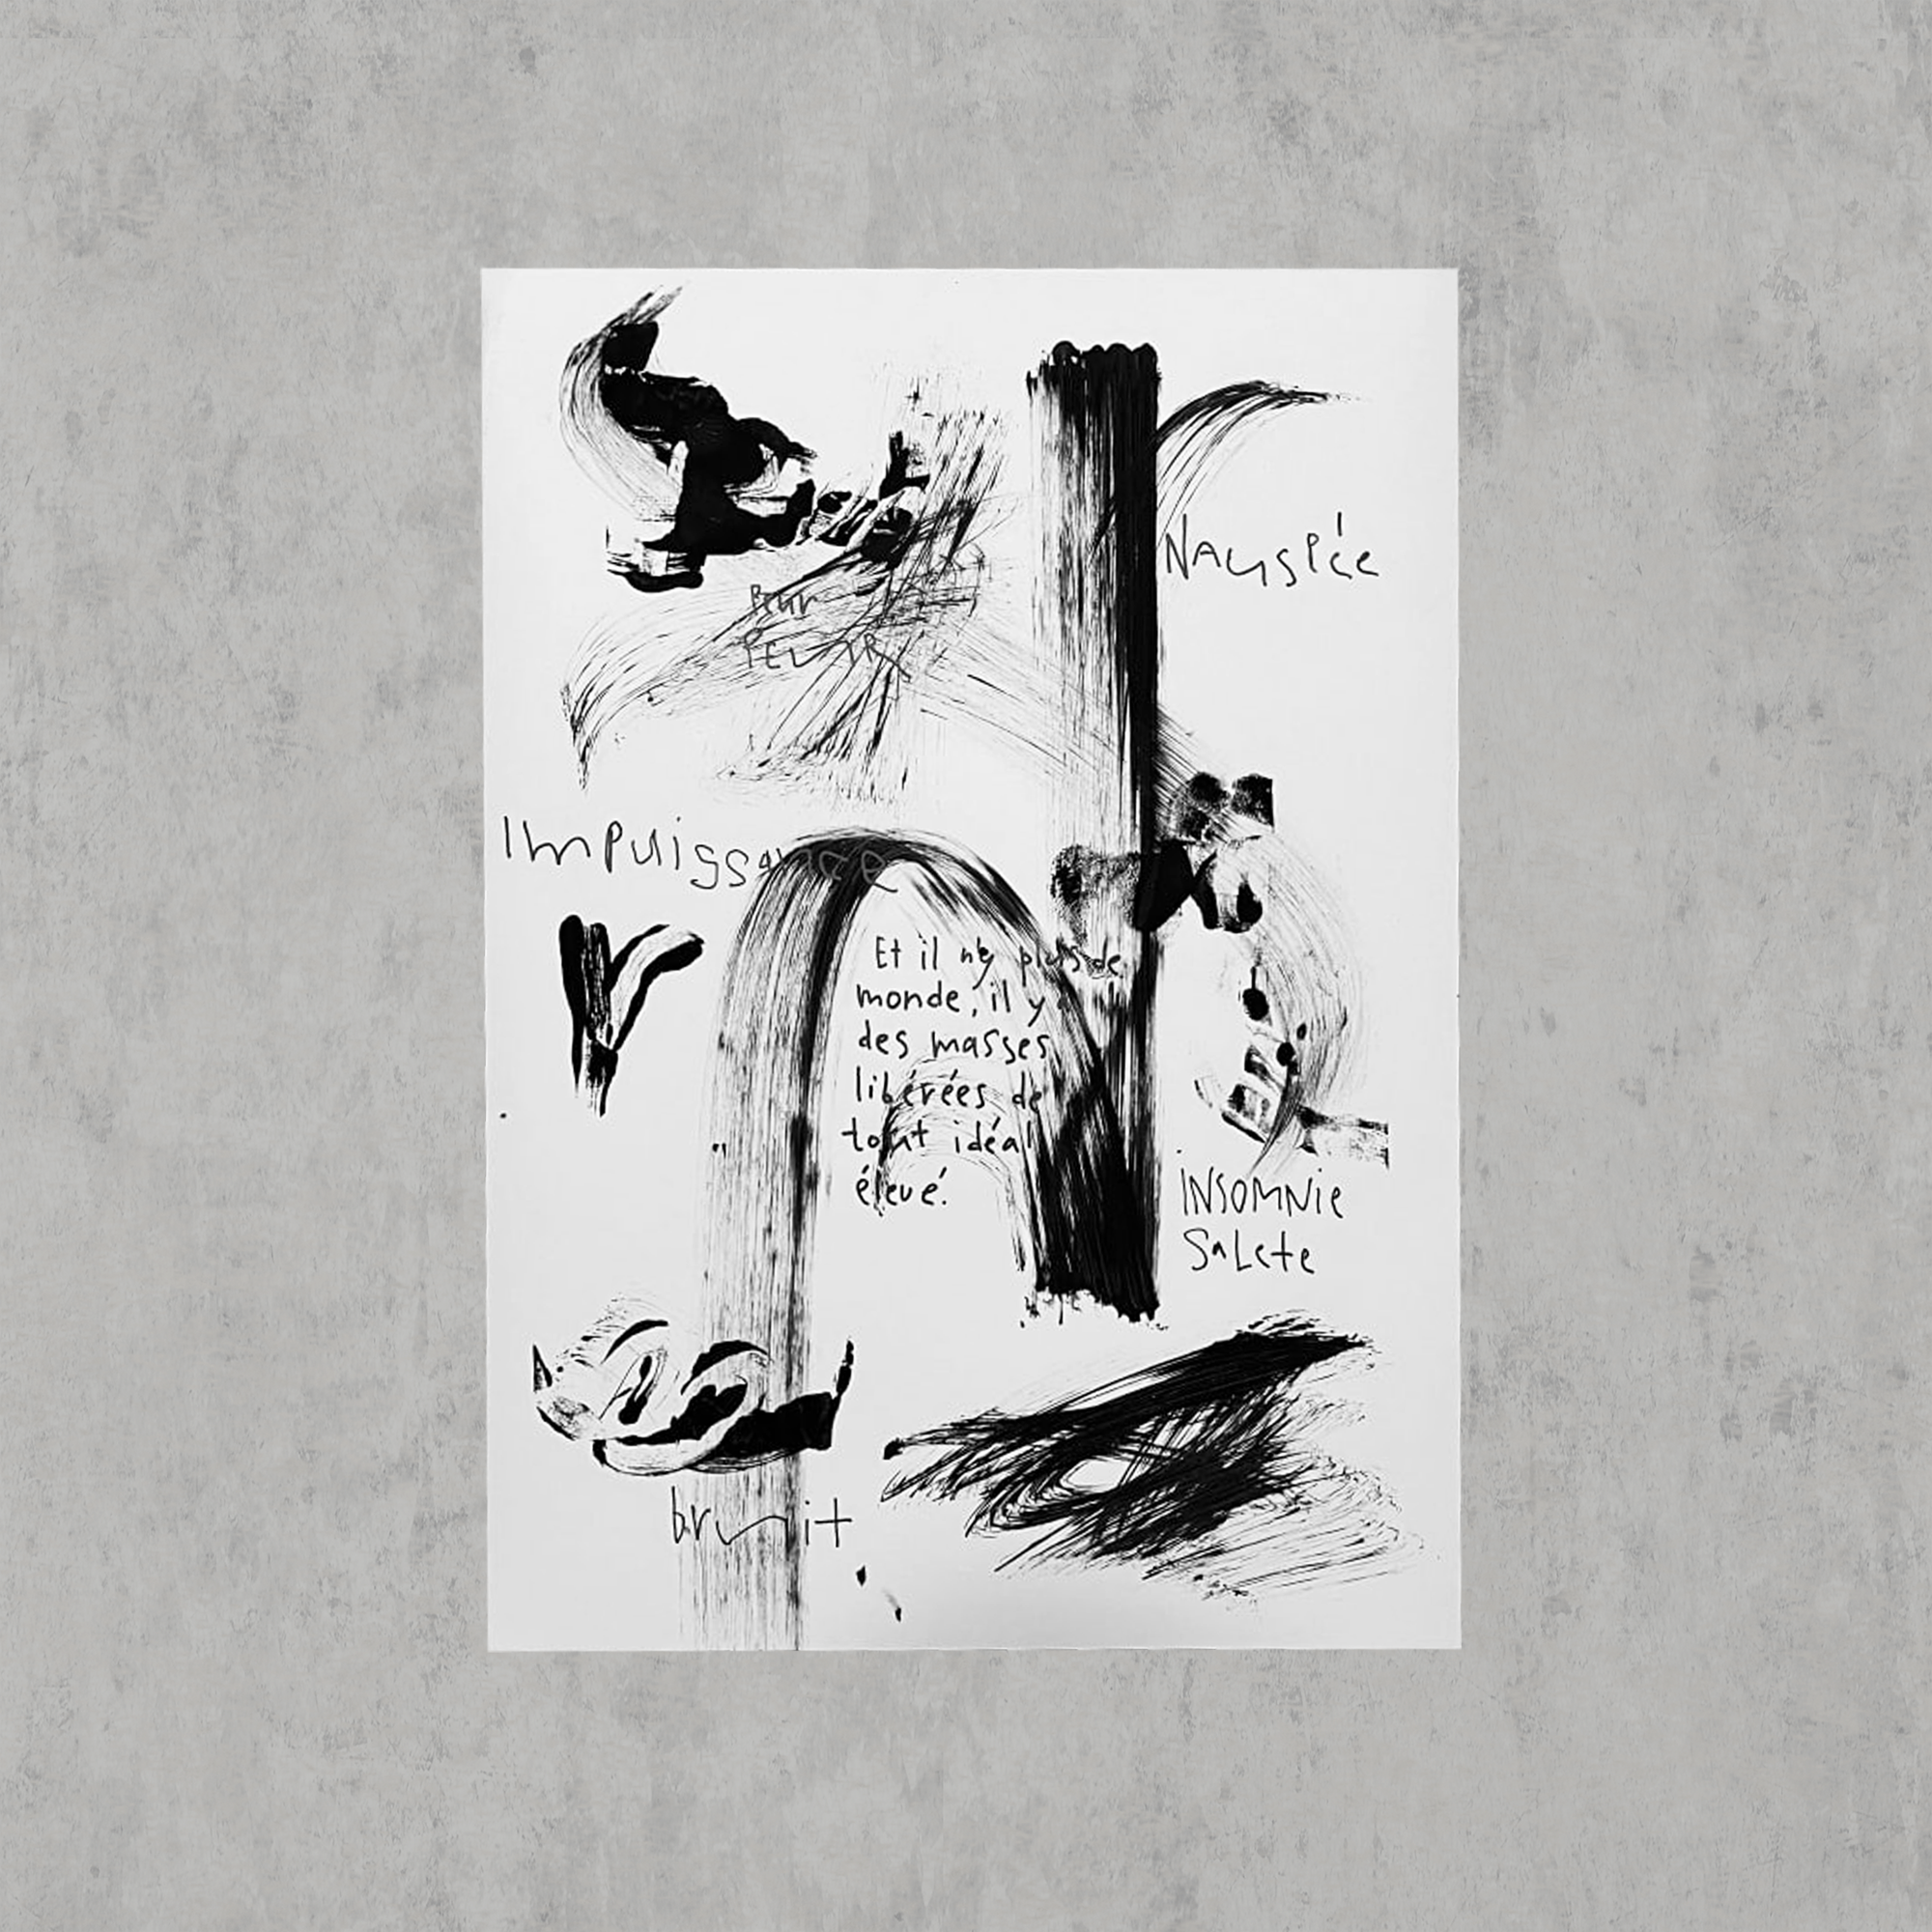 Nauséée
Peur
PEUR
Impuissance
Et il n'y plus de
monde, il y
des masses
libérées de
tout idéal
élevé.
INSOMNie
SaLete
bruit